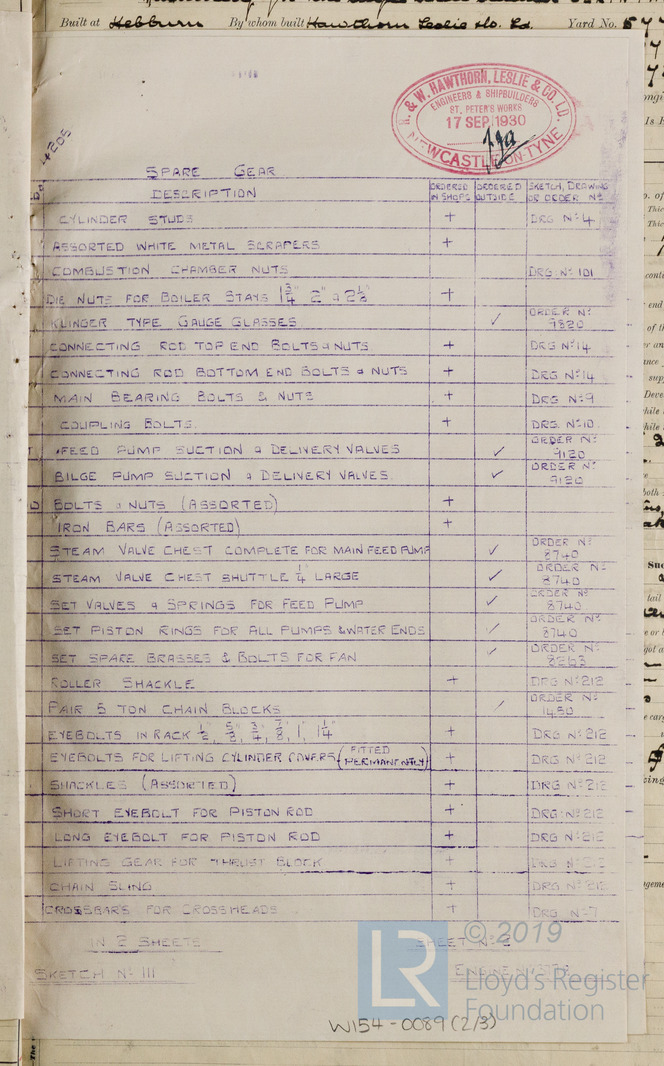 Built at Hebburn By whom built Hawthorn Leslie & Co. Ld. Yard No. 577
R. & W. HAWTHORN, LESLIE & CO. LD.
ENGINEERS & SHIPBUILDERS
ST. PETER'S WORKS
17 SEP 1930
NEWCASTLE-ON-TYNE
4205
SPARE GEAR
DESCRIPTION ORDERED IN SHOPS ORDERED OUTSIDE SKETCH, DRAWING OR ORDER Nº
CYLINDER STUDS + DRG Nº 4
ASSORTED WHITE METAL SCRAPERS +
COMBUSTION CHAMBER NUTS DRG Nº 101
DIE NUTS FOR BOILER STAYS 1 3/4" 2" & 2 1/8" +
KLINGER TYPE GAUGE GLASSES ✓ ORDER Nº 9820
CONNECTING ROD TOP END BOLTS & NUTS + DRG Nº 14
CONNECTING ROD BOTTOM END BOLTS & NUTS + DRG Nº 14
MAIN BEARING BOLTS & NUTS + DRG Nº 9
COUPLING BOLTS. + DRG Nº 10
FEED PUMP SUCTION & DELIVERY VALVES ✓ ORDER Nº 9120
BILGE PUMP SUCTION & DELIVERY VALVES ✓ ORDER Nº 9120
BOLTS & NUTS (ASSORTED) +
IRON BARS (ASSORTED) +
STEAM VALVE CHEST COMPLETE FOR MAIN FEED PUMP ✓ ORDER Nº 8740
STEAM VALVE CHEST SHUTTLE 1/4" LARGE ✓ ORDER Nº 8740
SET VALVES & SPRINGS FOR FEED PUMP ✓ ORDER Nº 8740
SET PISTON RINGS FOR ALL PUMPS & WATER ENDS ✓ ORDER Nº 8740
SET SPARE BRASSES & BOLTS FOR FAN ✓ ORDER Nº 8263
ROLLER SHACKLE + DRG Nº 212
PAIR 5 TON CHAIN BLOCKS ✓ ORDER Nº 1450
EYEBOLTS IN RACK 1/2", 5/8", 3/4", 7/8", 1", 1 1/4" + DRG Nº 212
EYEBOLTS FOR LIFTING CYLINDER COVERS (FITTED PERMANENTLY) + DRG Nº 212
SHACKLES (ASSORTED) + DRG Nº 212
SHORT EYEBOLT FOR PISTON ROD + DRG Nº 212
LONG EYEBOLT FOR PISTON ROD + DRG Nº 212
LIFTING GEAR FOR THRUST BLOCK + DRG Nº 212
CHAIN SLING + DRG Nº 212
CROSSBARS FOR CROSSHEADS + DRG Nº 7
IN 2 SHEETS SHEET Nº 2
SKETCH Nº 111 ENGINE Nº
LR © 2019
Lloyd's Register
Foundation
W154-0089 (2/3)